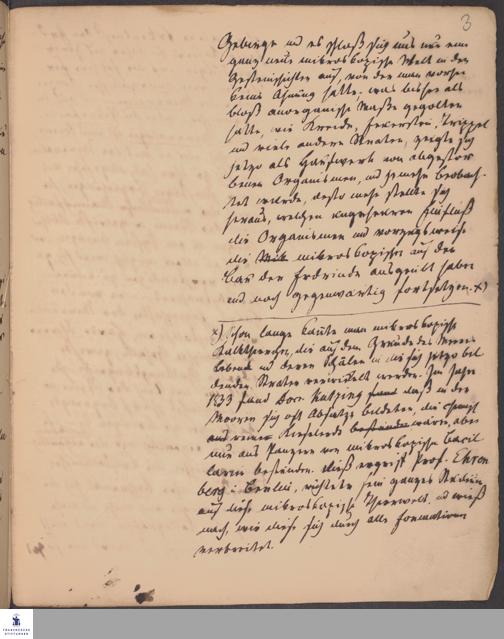 3
Gebirge und es schloß sich uns nun eine
ganz neue mikroskopische Welt in den
Gesteinsschichten auf, von der man vorher
keine Ahnung hatte. was bisher als
bloß anorganische Masse gegolten
hatte, wie Kreide, Feuerstein, Trippel
und viele andere Straten, zeigte sich
jetzo als Haufwerk von abgestor
benen Organismen, und jemehr beobach-
tet wurde, desto mehr stellte sich
heraus, welchen ungeheuren Einfluß
die Organismen und vorzugsweise
die mikroskopischen auf den
Bau der Erdrinde ausgeübt haben
und noch gegenwärtig fortsetzen. x)
x) Schon lange kannte man mikroskopische
die auf dem Grunde des Meeres
lebend und deren Schalen in die sich jetzo bil
denden Straten verwickelt werden. Im Jahre
1833 fand Doct. Kützing daß in den
Mooren sich oft Absätze bildeten, die
aus reiner Kieselerde bestünden wären, aber
nur aus Panzern von mikroskopischen Bacil
larien bestünden. Dieß ergriff Prof. Ehren
berg in Berlin, richtete sein ganzes Studium
auf diese mikroskopische Thierwelt, und wieß
nach, wie diese sich durch alle Formationen
verbreitet.
FRANCKESCHE
STIFTUNGEN